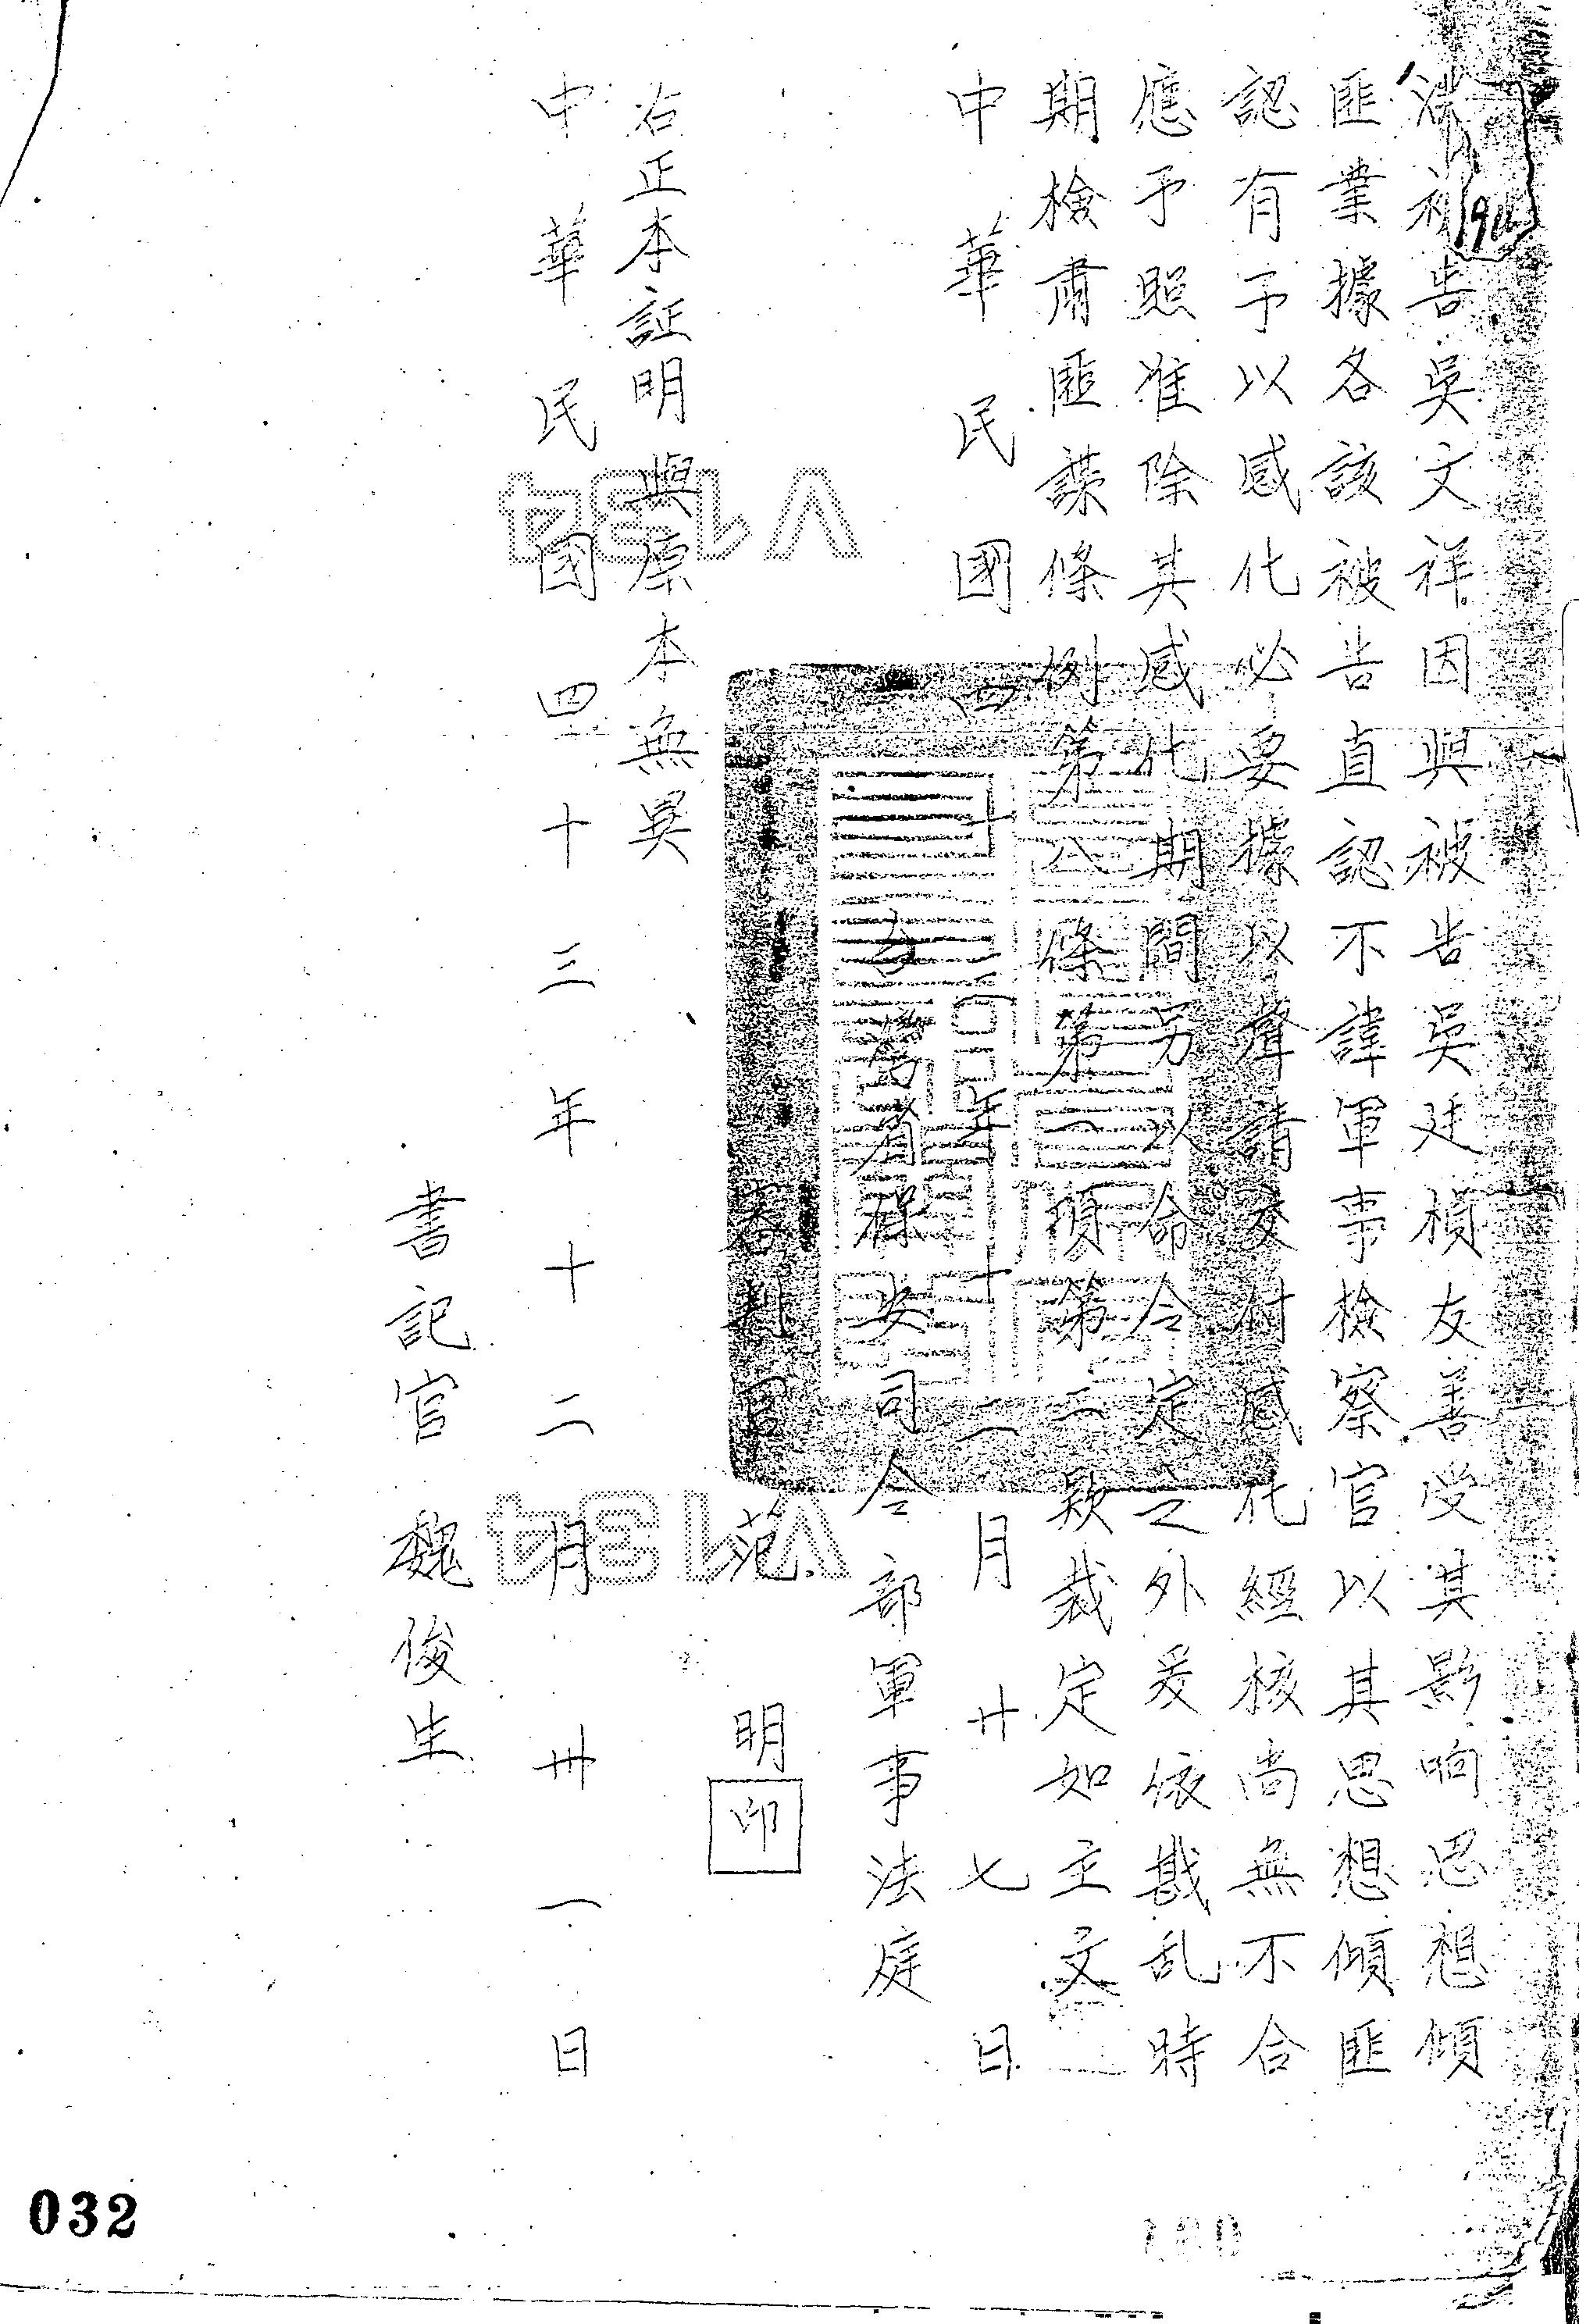 被告吳文祥因與被告吳廷楨友善受其影响思想傾
匪業據各該被告直認不諱軍事檢察官以其思想傾匪
認有予以感化必要據以聲請交付感化經核尚無不合
應予照准除其感化期間另以命令定之外爰依戡乱時
期檢肅匪諜條例第八條第一項第二款裁定如主文
中華民國四十三年十二月廿七日
台灣省保安司令部軍事法庭
審判官范明
印
右正本証明與原本無異
中華民國四十三年十二月卅一日
書記官魏俊生
V134
V134
032